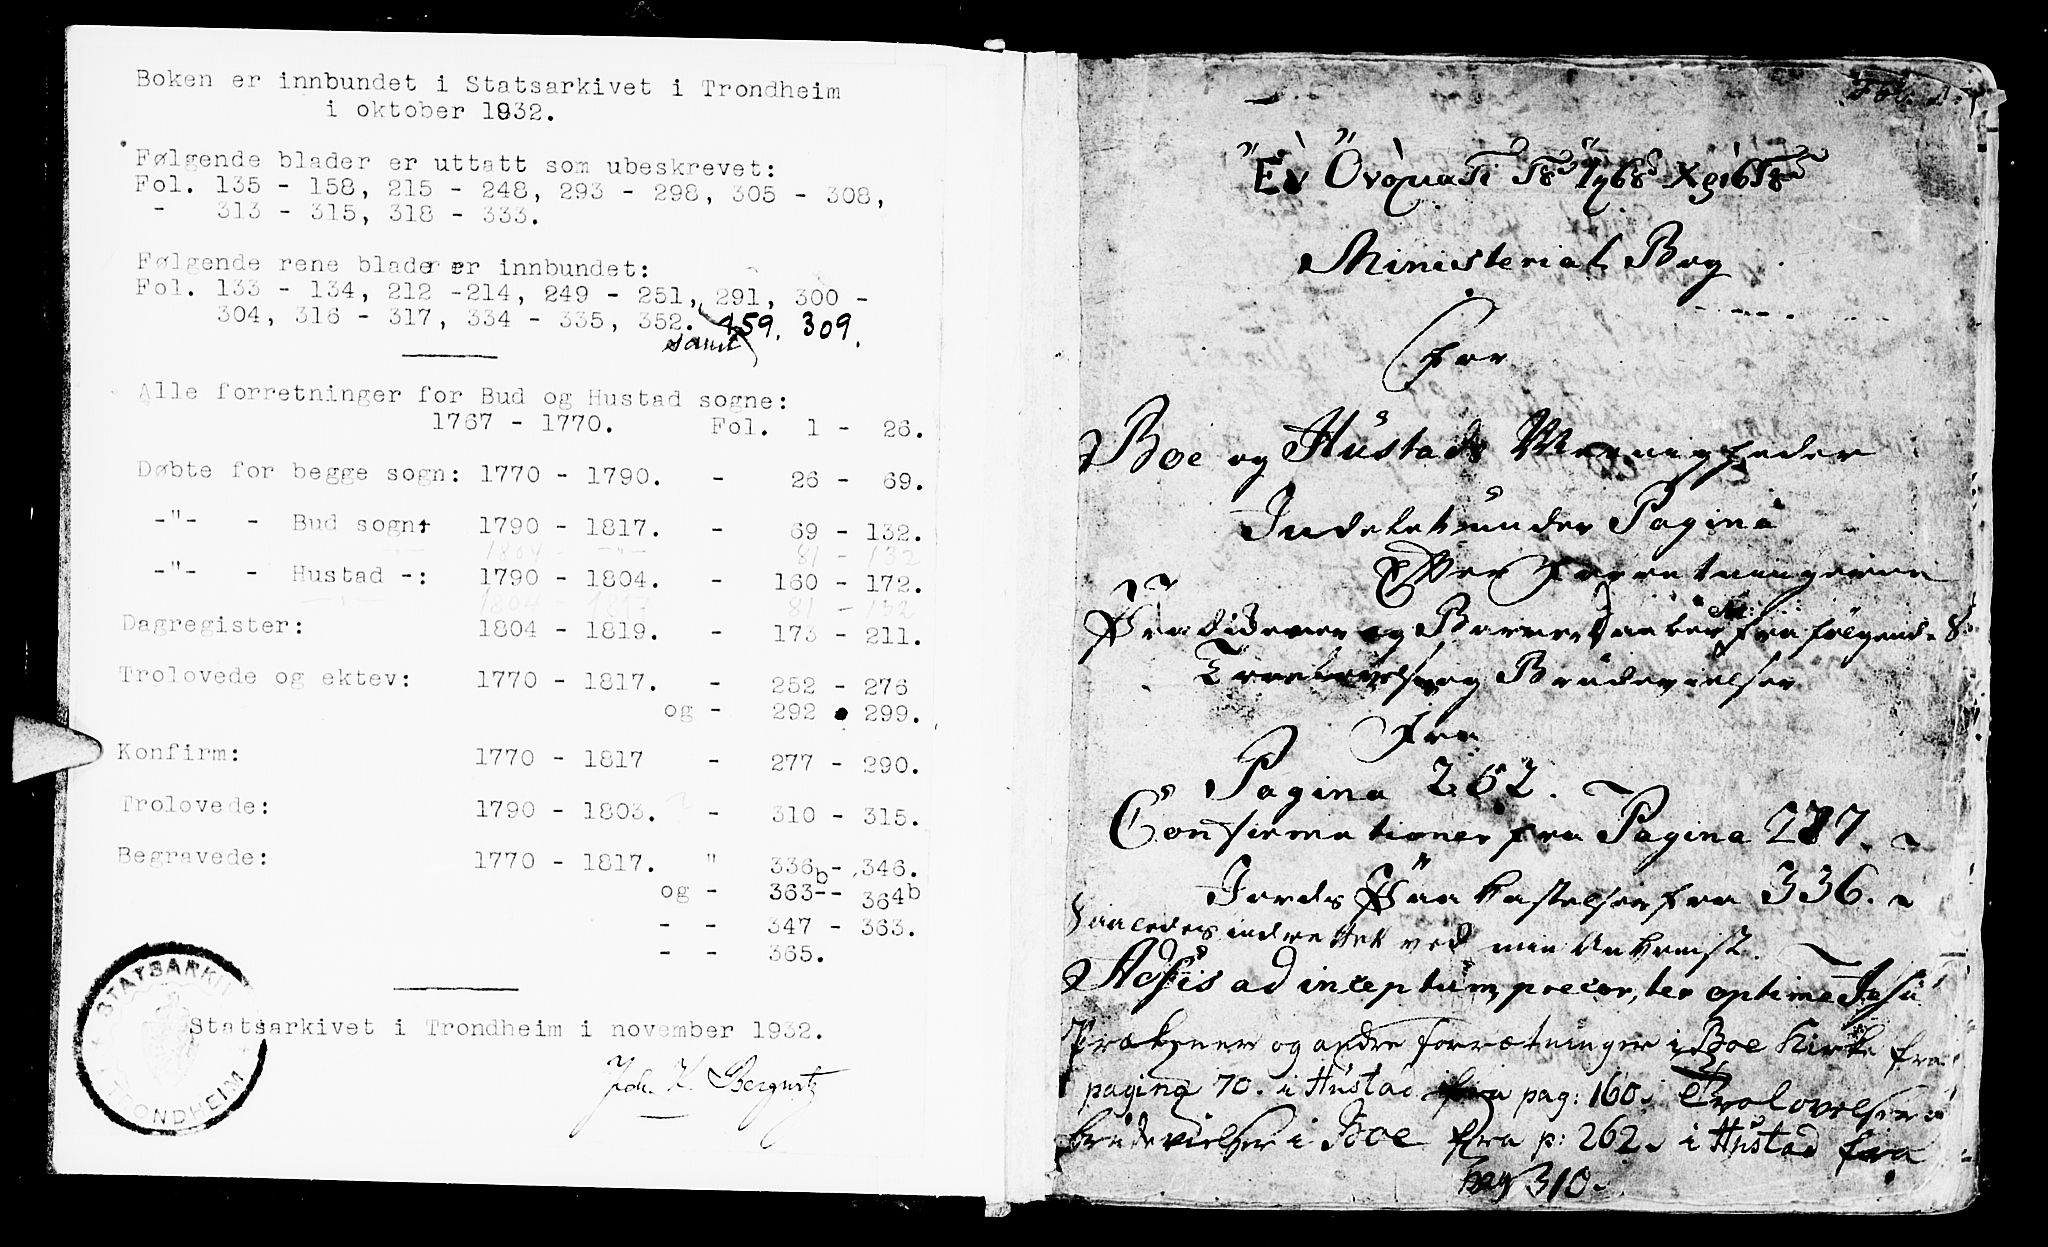 Boken er innbundet i Statsarkivet i Trondheim
i oktober 1932.
Følgende blader er uttatt som ubeskrevet:
Fol. 135 - 158, 215 - 248, 293 - 298, 305 - 308,
- 313 - 315, 318 - 333.
Følgende rene blader er innbundet:
Fol. 133 - 134, 212 -214, 249 - 251, 291, 300 -
304, 316 - 317, 334 - 335, 352. samt 159. 309.
Alle forretninger for Bud og Hustad sogne:
1767 - 1770. Fol. 1 - 26.
Døbte for begge sogn: 1770 - 1790. - 26 - 69.
-"- - Bud sogn: 1790 - 1817. - 69 - 132.
1804 - -"- 81 - 132
-"- - Hustad -: 1790 - 1804. - 160 - 172.
1804 - 1817 81 - 132
Dagregister: 1804 - 1819. - 173 - 211.
Trolovede og ektev: 1770 - 1817. - 252 - 276
og - 292 - 299.
Konfirm: 1770 - 1817 - 277 - 290.
Trolovede: 1790 - 1803. - 310 - 315.
Begravede: 1770 - 1817. " 336b - 346.
og - 363-- 364b
- - 347 - 363.
- - 365.
Statsarkivet i Trondheim i november 1932.
STATSARKIVET
TRONDHEIM
Fol. 1.
Ministerial Bog
for
Boe og Hustads Menigheder
Indelet under Pagina
Efter Forretningerne
Prædikener og Barne Daaber fra følgende
Troelovelse og Brudevielser
fra
Pagina 262.
Confirmationer fra Pagina 277.
Jords Paa kastelser fra 336.
Saaledes indrettet ved min Ankomst.
Adsis ad inceptum, precor, ter optime Jesu
Prækener og andre forrætninger i Boe Kirke fra
pagina 70. i Hustad fra pag: 160. Trolovelser o
brudevielser i Boe fra p: 262. i Hustad fra
pag 310.